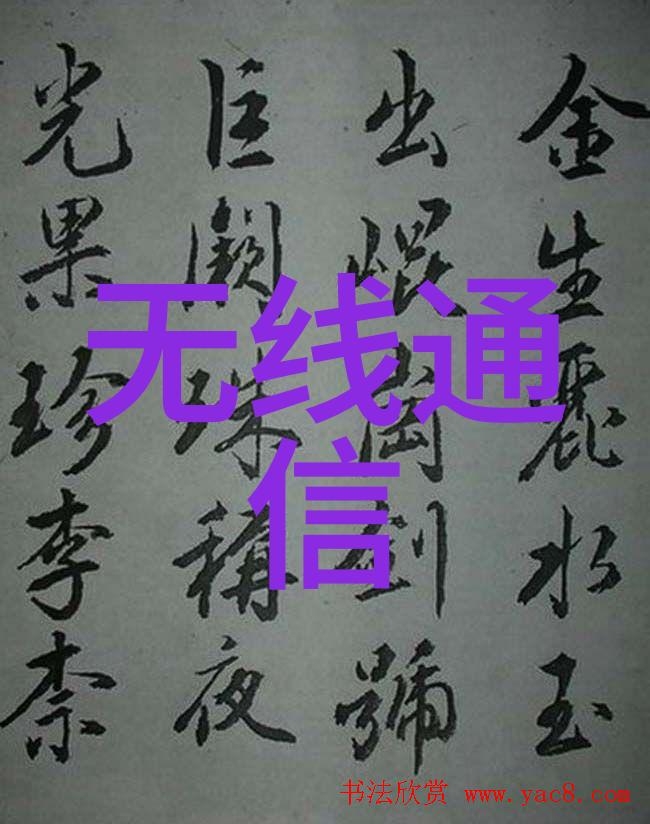 金生麗水玉
出崐岡劍號
巨闕珠稱夜
光果珍李柰
无线通
信
书法欣赏 www.yac8.com